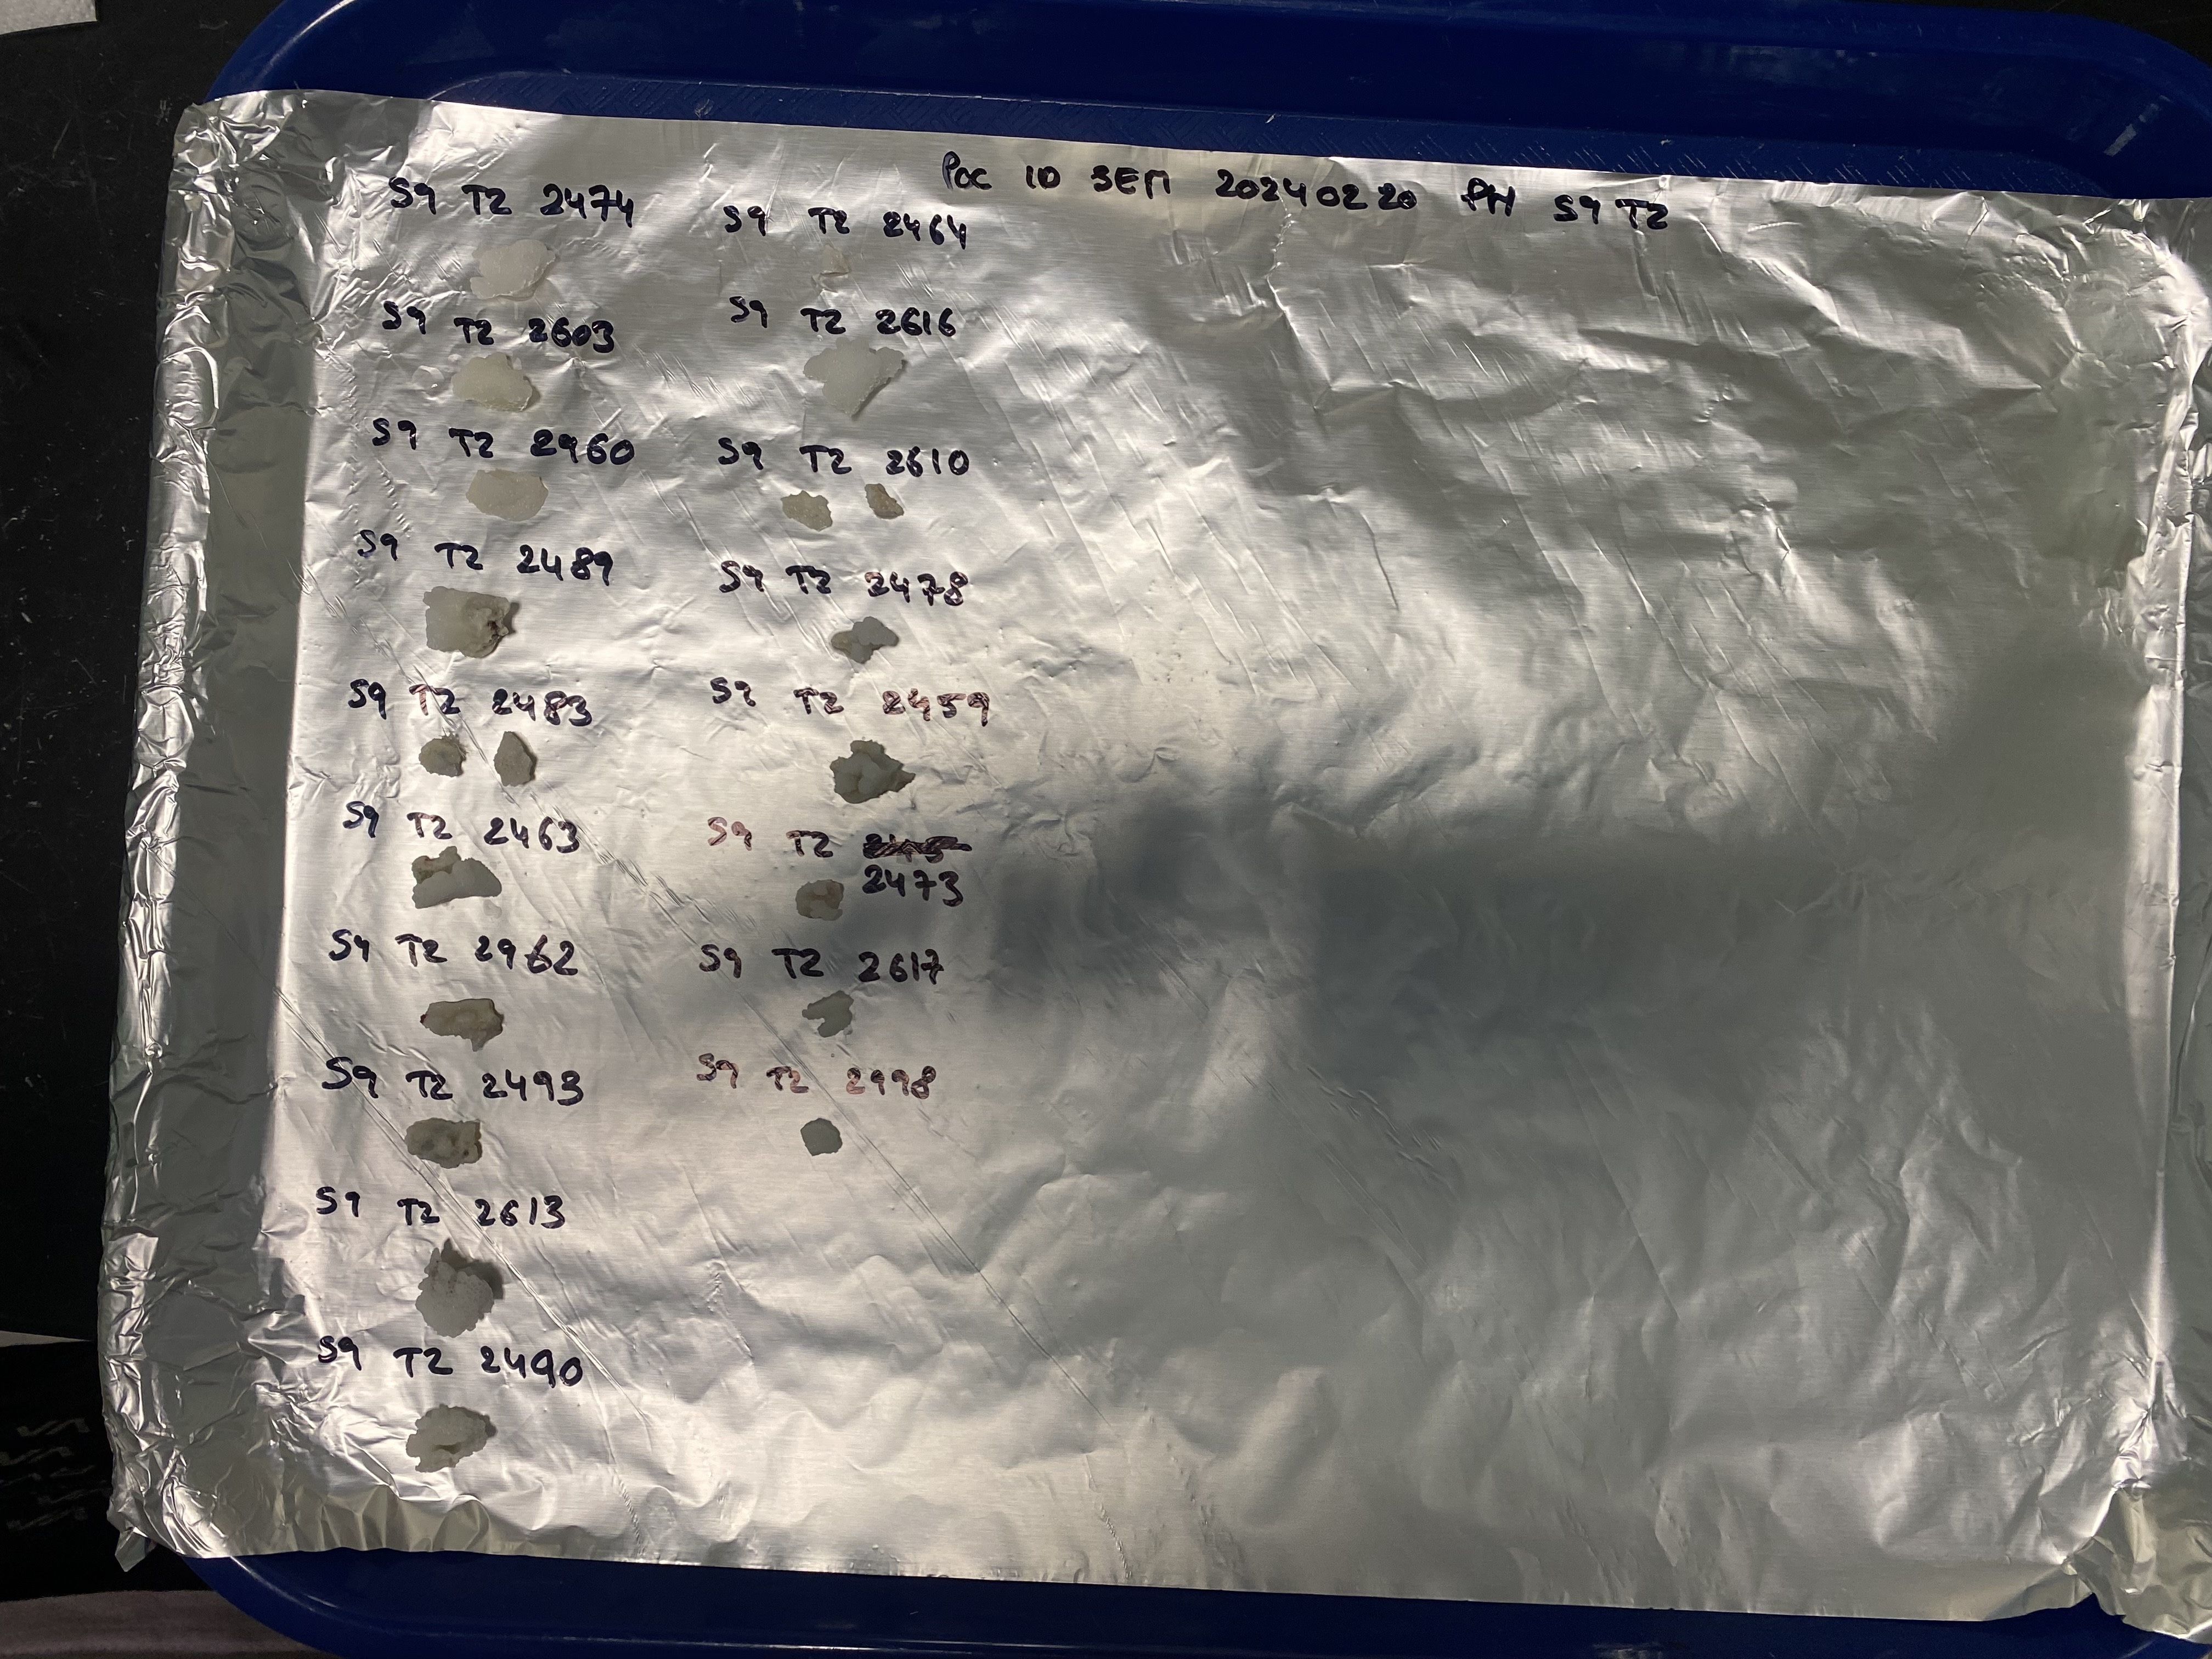 POC 10 SEM 20240220 PM S9 T2
S9 T2 2474
S9 T2 2603
S9 T2 2960
S9 T2 2489
S9 T2 2483
S9 T2 2463
S9 T2 2962
S9 T2 2493
S9 T2 2613
S9 T2 2490
S9 T2 2464
S9 T2 2616
S9 T2 2610
S9 T2 2478
S9 T2 2459
S9 T2
2473
S9 T2 2617
S9 T2 2998